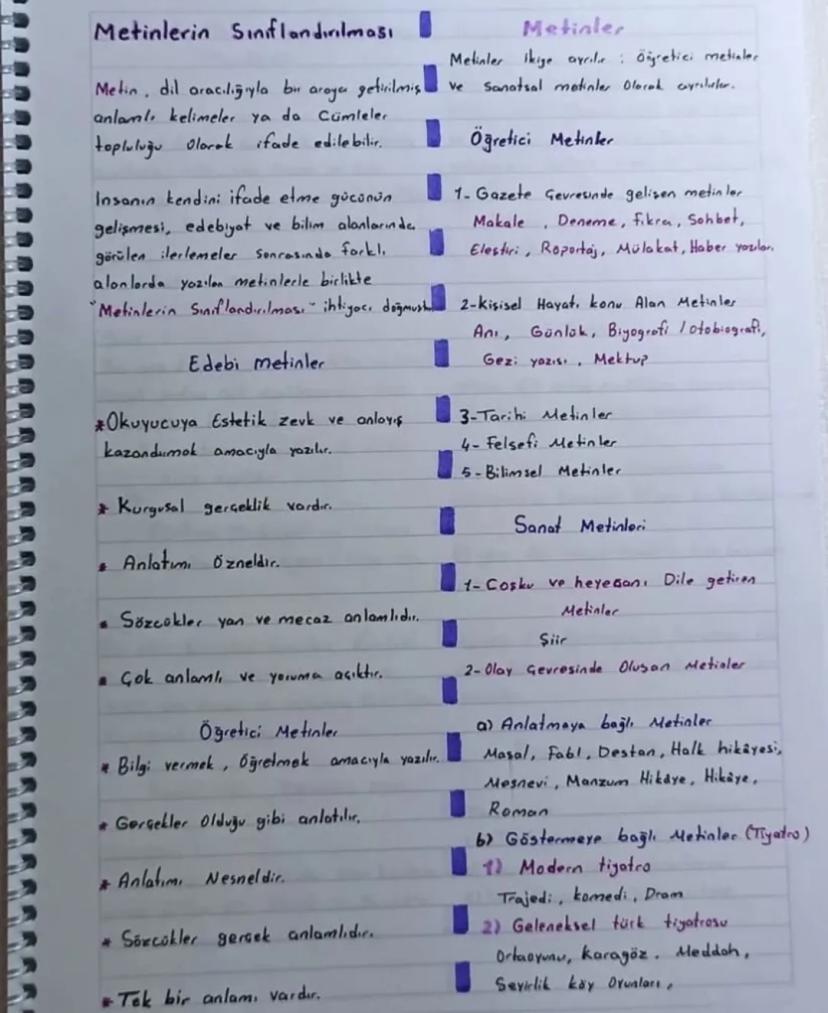 Metinlerin Sınıflandırılması
Metin, dil aracılığıyla bir araya getirilmiş
anlamlı kelimeler ya da Cümleler
topluluğu Olarak ifade edilebilir.
Insanın kendini ifade etme gücünün
gelişmesi, edebiyat ve bilim alanlarında
görülen ilerlemeler sonrasında farklı
alanlarda yazılan metinlerle birlikte
"Metinlerin Sınıflandırılması" ihtiyacı doğmuştu
Edebi metinler
*Okuyucuya Estetik zevk ve anlayış
kazandırmak amacıyla yazılır.
* Kurgusal gerçeklik vardır.
* Anlatımı Özneldir.
* Sözcükler yan ve mecaz anlamlıdır.
* Çok anlamlı ve yoruma açıktır.
Öğretici Metinler
* Bilgi vermek, Öğretmek amacıyla yazılır.
* Gerçekler Olduğu gibi anlatılır.
* Anlatımı Nesneldir.
* Sözcükler gerçek anlamlıdır.
* Tek bir anlamı vardır.
Metinler
Metinler ikiye ayrılır : Öğretici metinler
ve Sanatsal metinler Olarak ayrılırlar.
Öğretici Metinler
1- Gazete Çevresinde gelişen metinler
Makale, Deneme, fıkra, Sohbet,
Eleştiri, Röportaj, Mülakat, Haber yazıları
2-Kişisel Hayatı konu Alan Metinler
Anı, Günlük, Biyografi / Otobiografi,
Gezi yazısı, Mektup
3-Tarihi Metinler
4- Felsefi Metinler
5-Bilimsel Metinler
Sanat Metinleri
1- Coşku ve heyecanı Dile getiren
Metinler
Şiir
2-Olay Çevresinde Oluşan Metinler
a) Anlatmaya bağlı Metinler
Masal, Fabl, Destan, Halk hikâyesi,
Mesnevi, Manzum Hikâye, Hikâye,
Roman
b) Göstermeye bağlı Metinler (Tiyatro)
1) Modern tiyatro
Trajedi, komedi, Dram
2) Geleneksel türk tiyatrosu
Ortaoyunu, Karagöz. Meddah,
Seyirlik köy Oyunları,